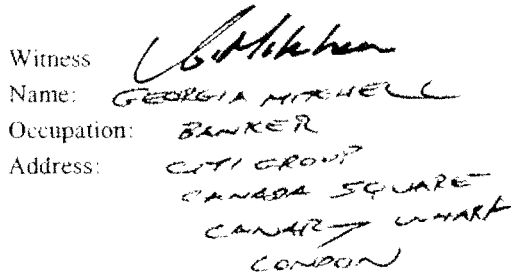 Witness G. Mitchell
Name: GEORGIA MITCHELL
Occupation: BANKER
Address: CITIGROUP
CANADA SQUARE
CANARY WHARF
LONDON